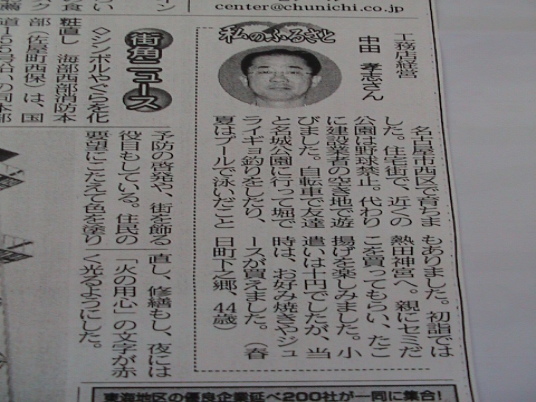 center@chunichi.co.jp
私のふるさと
工務店経営
中田 孝志さん
名古屋市西区で育ちま
した。住宅街で、近くの
公園は野球禁止。代わり
に建設業者の空き地で遊
びました。自転車で友達
と名城公園に行って堀で
ライギョ釣りをしたり、
夏はプールで泳いだこと
もありました。初詣では
熱田神宮へ。親にセミだ
こを買ってもらい、たこ
揚げを楽しみました。小
遣いは千円でしたが、当
時は、お好み焼きやジュ
ースが買えました。(春
日町下之郷、44歳)
街角ニュース
◇シンボルやぐらを化
粧直し 海部西部消防本
部(佐屋町西保)は、国
予防の啓発や、街を飾る
役目もしている。住民の
要望にこたえて色を塗り
直し、修繕もし、夜には
「火の用心」の文字が赤
く光るようにした。
東海地区の優良企業延べ200社が一同に集合!